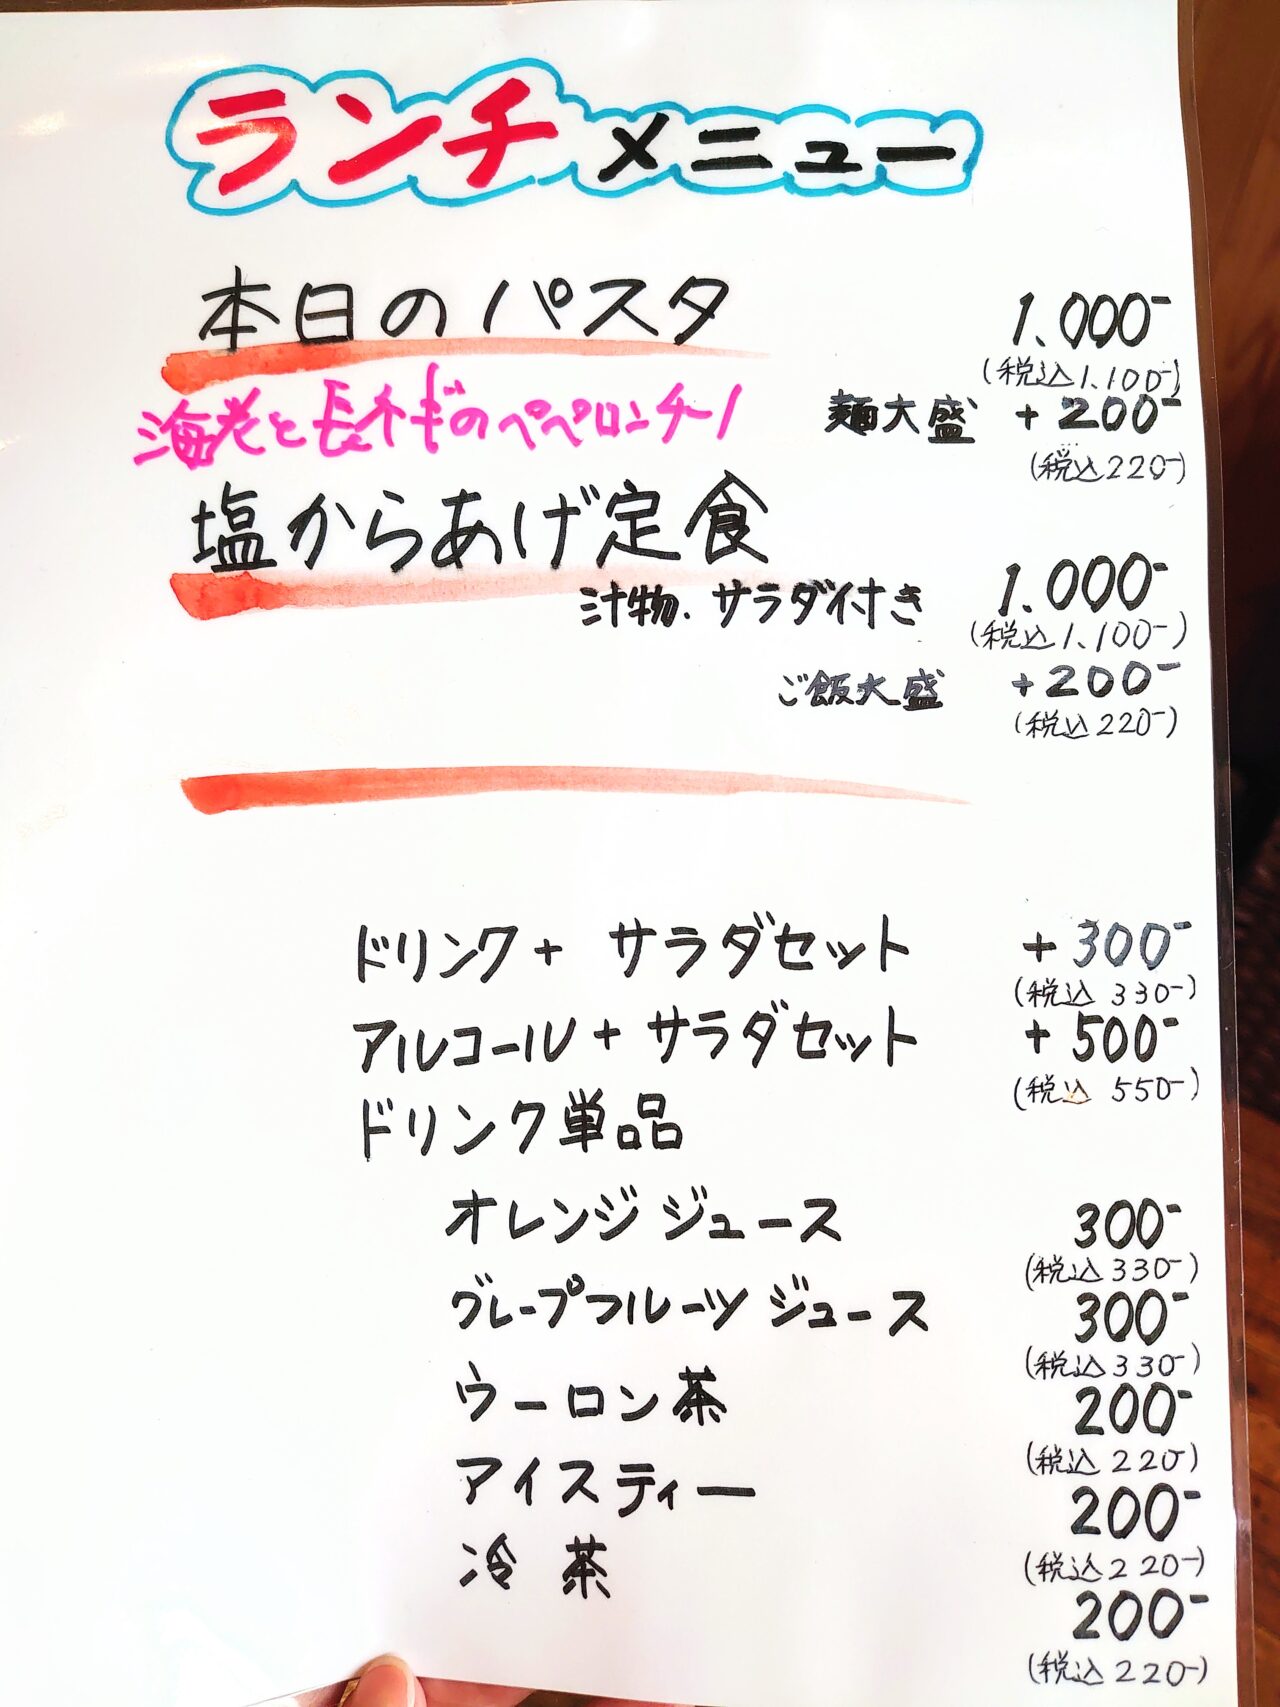 ランチメニュー
本日のパスタ 1.000-
(税込1.100-)
海老と長ネギのペペロンチーノ 麺大盛 +200-
(税込220-)
塩からあげ定食
汁物.サラダ付き 1.000-
(税込1.100-)
ご飯大盛 +200-
(税込220-)
ドリンク+サラダセット +300-
(税込330-)
アルコール+サラダセット +500-
(税込550-)
ドリンク単品
オレンジジュース 300-
(税込330-)
グレープフルーツジュース 300-
(税込330-)
ウーロン茶 200-
(税込220-)
アイスティー 200-
(税込220-)
冷茶 200-
(税込220-)